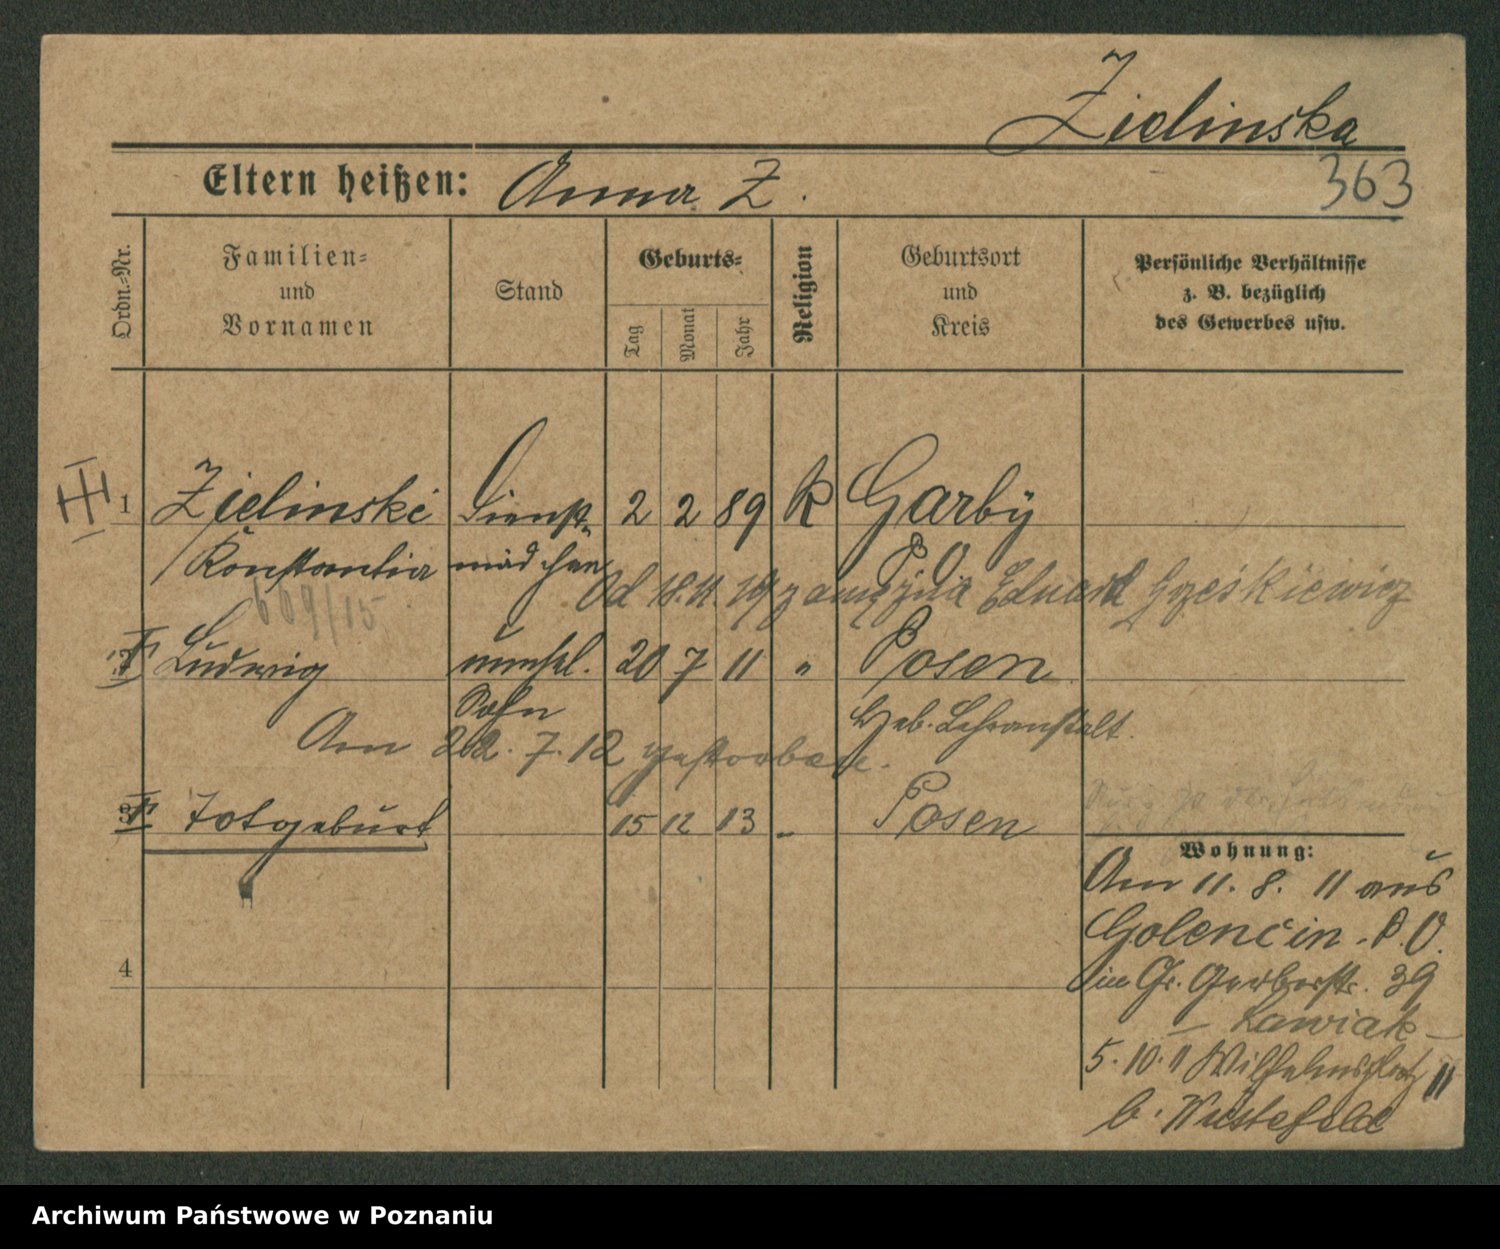 Zielinska
363
Eltern heißen: Anna Z.
Ordn.-Nr.
Familien- und Vornamen
Stand
Geburts-
Tag
Monat
Jahr
Religion
Geburtsort und Kreis
Persönliche Verhältnisse
z. B. bezüglich
des Gewerbes usw.
1 Zielinski Dienst- 2 2 89 k Garby
Konstantia mädchen P. O
Od 18.11.19 zamężna Eduard Grześkiewicz
609/15
2 Ludwig unehl. 20 7 11 " Posen
Sohn Heb. Lehranstalt.
Am 22. 7. 12 gestorben.
3 Totgeburt 15 12 13 " Posen
Wohnung:
Am 11. 8. 11 aus
Golencin. P. O.
in Gr. Gerberstr. 39
– Lawiak –
5. 10. 11 Wilhelmsplatz 11
b. Wüstefeld
4
Archiwum Państwowe w Poznaniu